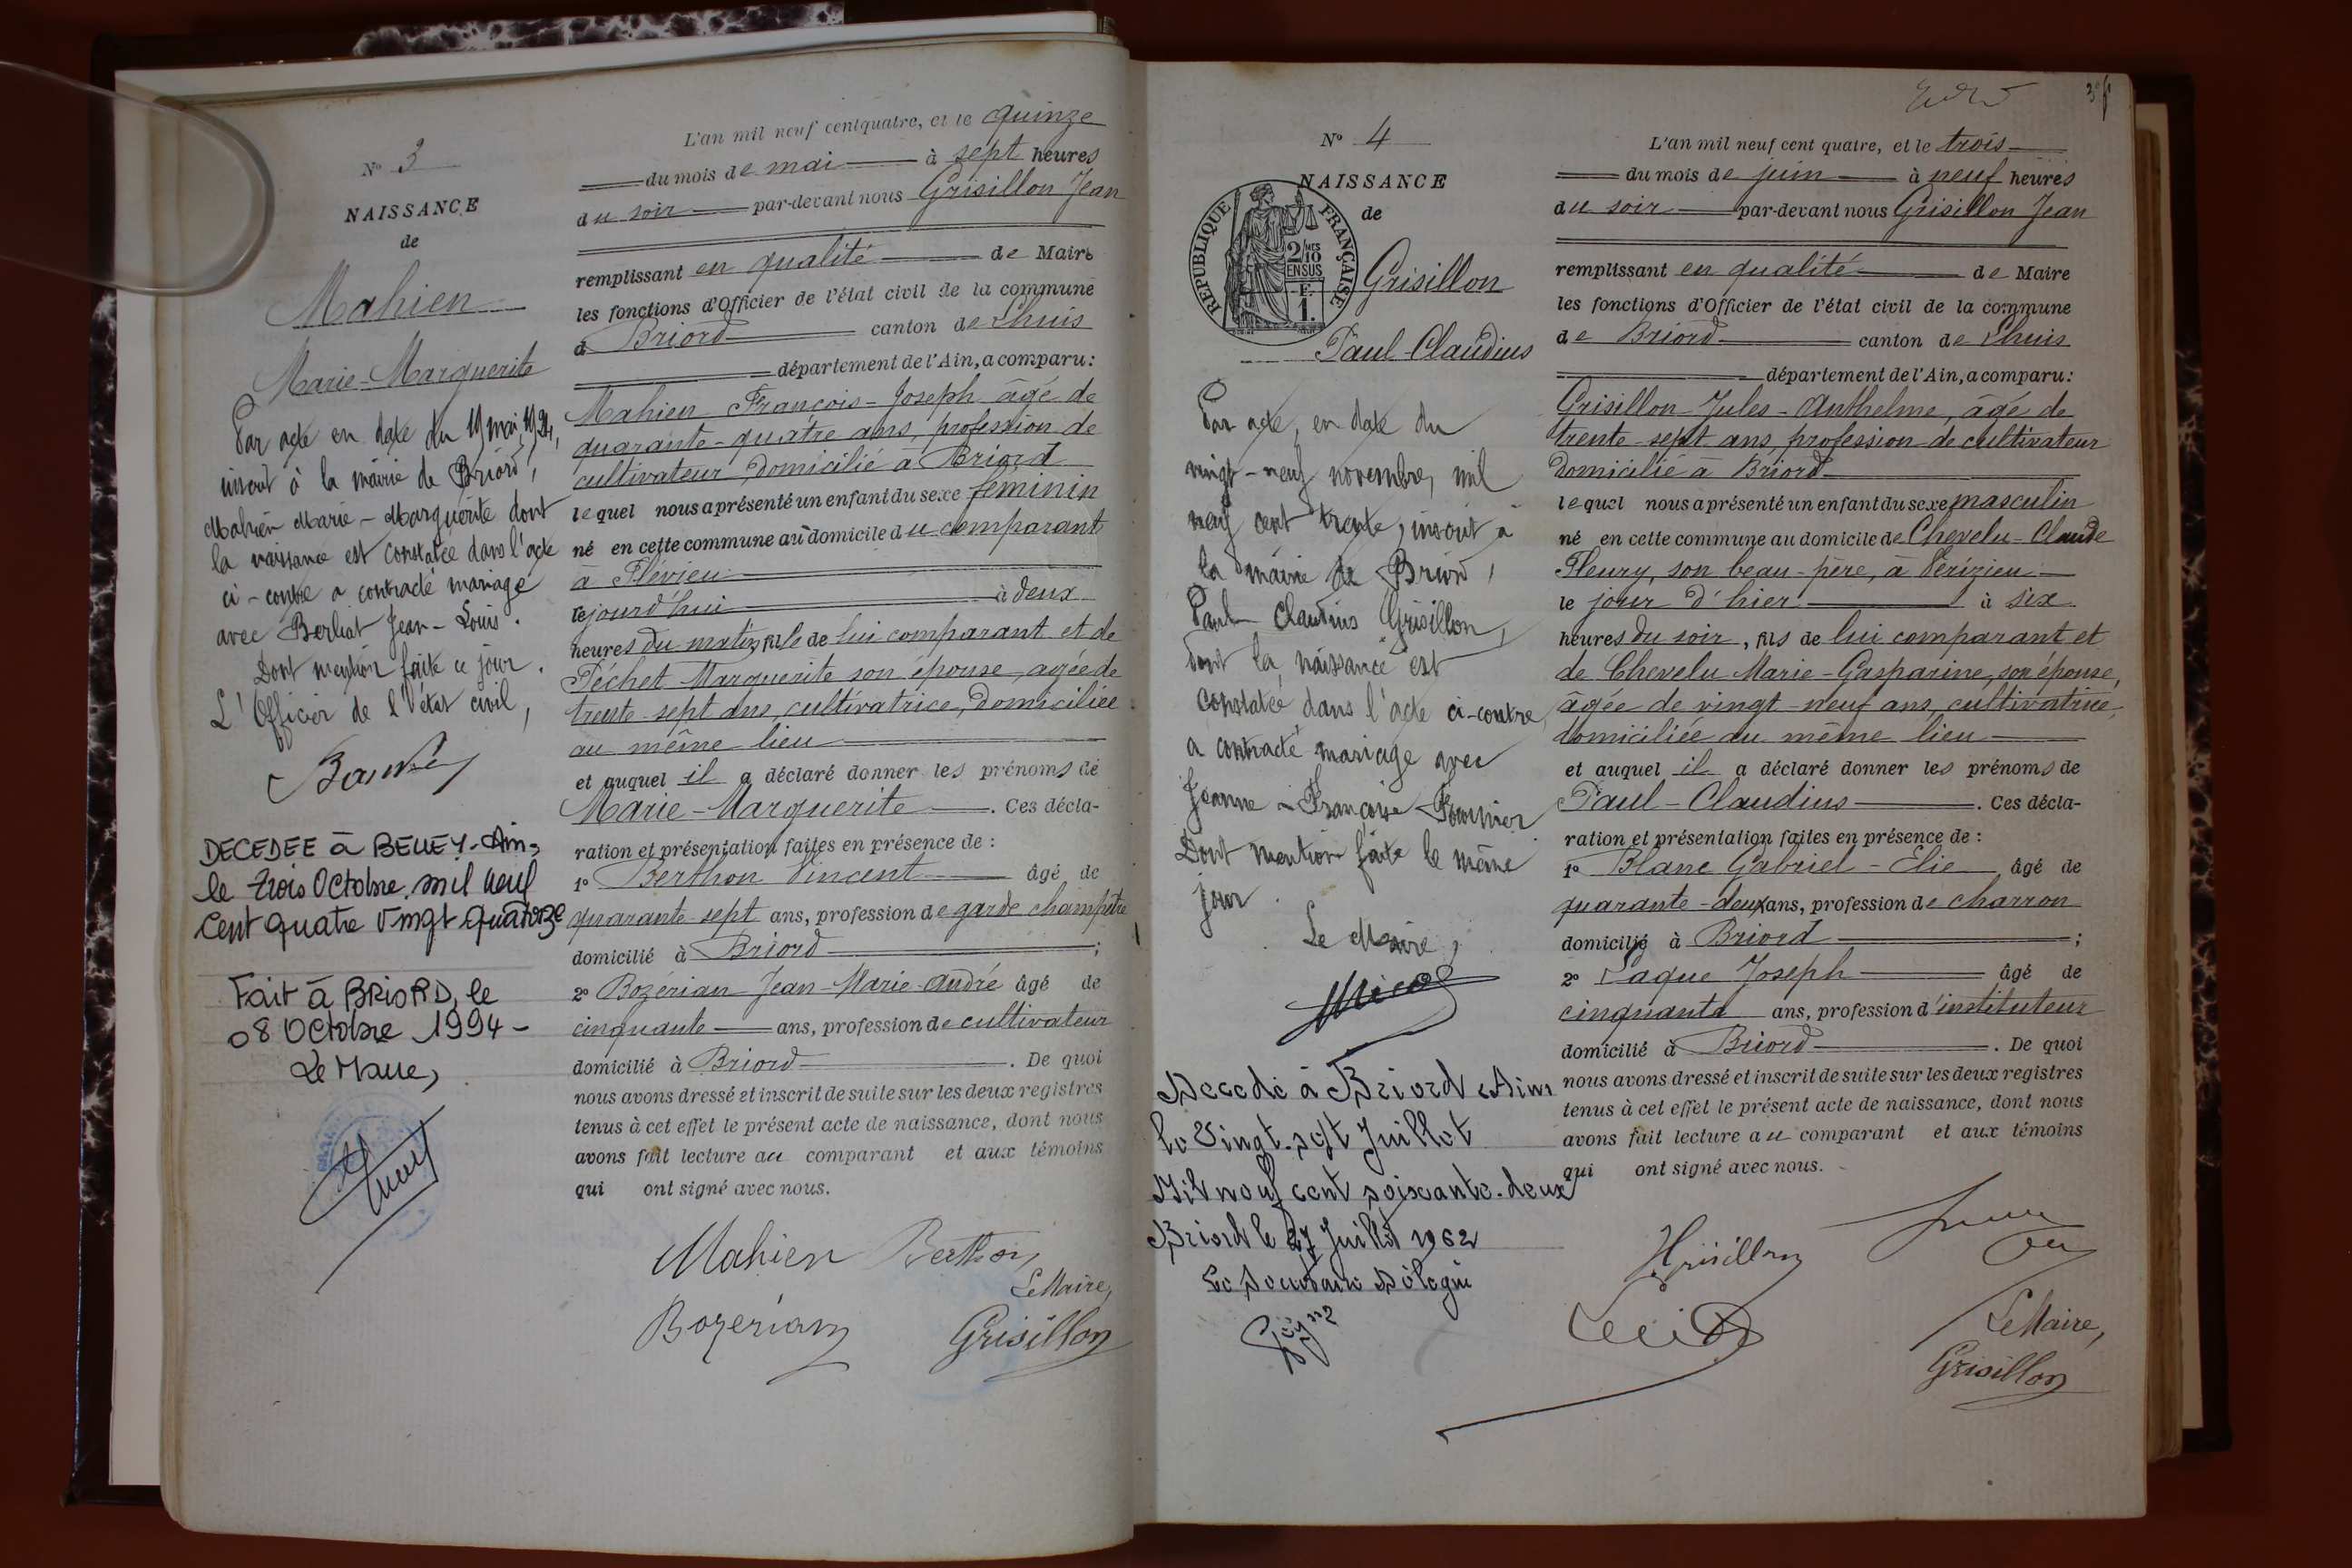 N° 3
NAISSANCE
de
Mahien
Marie-Marguerite
Par acte en date du 19 mai 1924,
inscrit à la mairie de Briord,
Mahien Marie-Marguerite dont
la naissance est constatée dans l'acte
ci-contre a contracté mariage
avec Berliat Jean-Louis.
Dont mention faite ce jour.
L'Officier de l'état civil,
DECEDEE à BELLEY-Ain,
le trois Octobre mil neuf
Cent quatre Vingt quatorze
Fait à BRIORD, le
08 Octobre 1994-
Le Maire,
L'an mil neuf cent quatre, et le quinze
du mois de mai à sept heures
du soir par-devant nous Grisillon Jean
remplissant en qualité de Maire
les fonctions d'Officier de l'état civil de la commune
d Briord canton de Lhuis
département de l'Ain, a comparu:
Mahien François-Joseph âgé de
quarante-quatre ans, profession de
cultivateur, domicilié à Briord
lequel nous a présenté un enfant du sexe féminin
né en cette commune au domicile du comparant
à Flévieu
le jourd'hui à deux
heures du matin, fille de lui comparant et de
Péchet Marguerite son épouse, agée de
trente-sept ans, cultivatrice, domiciliée
au même lieu
et auquel il a déclaré donner les prénoms de
Marie-Marguerite. Ces décla-
ration et présentation faites en présence de :
1° Berthon Vincent âgé de
quarante-sept ans, profession de garde champêtre
domicilié à Briord ;
2° Bozérian Jean-Marie-André âgé de
cinquante ans, profession de cultivateur
domicilié à Briord. De quoi
nous avons dressé et inscrit de suite sur les deux registres
tenus à cet effet le présent acte de naissance, dont nous
avons fait lecture au comparant et aux témoins
qui ont signé avec nous.
Mahien Berthon
Le Maire,
Bozerian Grisillon
N° 4
NAISSANCE
de
REPUBLIQUE FRANÇAISE
2/10 MES
EN SUS
F.
1.
Grisillon
Paul-Claudius
Par acte, en date du
vingt-neuf novembre, mil
neuf cent trente, inscrit à
la mairie de Briord,
Paul-Claudius Grisillon,
dont la naissance est
constatée dans l'acte ci-contre,
a contracté mariage avec
Jeanne-Françoise Fournier
Dont mention faite le même
jour.
Le Maire,
Décédé à Briord (Ain)
le Vingt-sept Juillet
Mil neuf cent soixante-deux
Briord le 27 Juillet 1962
Le Secrétaire Délégué
L'an mil neuf cent quatre, et le trois
du mois de juin à neuf heures
du soir par-devant nous Grisillon Jean
remplissant en qualité de Maire
les fonctions d'Officier de l'état civil de la commune
de Briord canton de Lhuis
département de l'Ain, a comparu:
Grisillon Jules-Anthelme, âgé de
trente-sept ans, profession de cultivateur
domicilié à Briord
lequel nous a présenté un enfant du sexe masculin
né en cette commune au domicile de Chevelu-Claude
Fleury, son beau-père, à Vérizieu
le jour d'hier à six
heures du soir, fils de lui comparant et
de Chevelu Marie-Gasparine, son épouse,
âgée de vingt-neuf ans, cultivatrice,
domiciliée au même lieu
et auquel il a déclaré donner les prénoms de
Paul-Claudius. Ces décla-
ration et présentation faites en présence de :
1° Blanc Gabriel-Elie âgé de
quarante-deux ans, profession de charron
domicilié à Briord ;
2° Laque Joseph âgé de
cinquante ans, profession d'instituteur
domicilié à Briord. De quoi
nous avons dressé et inscrit de suite sur les deux registres
tenus à cet effet le présent acte de naissance, dont nous
avons fait lecture au comparant et aux témoins
qui ont signé avec nous.
Grisillon
Le Maire,
Grisillon